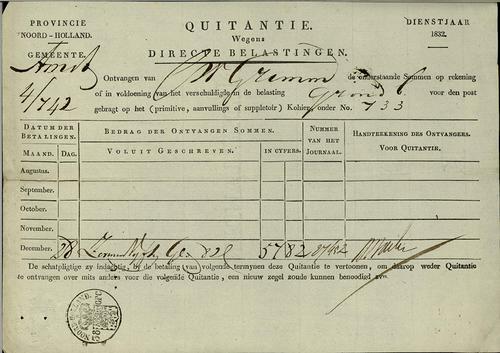 PROVINCIE
NOORD-HOLLAND.
GEMEENTE.
4/742
QUITANTIE.
Wegens
DIRECTE BELASTINGEN.
DIENSTJAAR
1832.
Ontvangen van W Grimm de onderstaande Sommen op rekening
of in voldoening van het verschuldigde in de belasting voor den post
gebragt op het (primitive, aanvullings of suppletoir) Kohier, onder No. 733
DATUM DER
BETALINGEN.
BEDRAG DER ONTVANGEN SOMMEN.
NUMMER
VAN HET
JOURNAAL.
HANDTEEKENING DES ONTVANGERS.
VOOR QUITANTIE.
MAAND. DAG. VOLUIT GESCHREVEN. IN CYFERS.
Augustus.
September.
October.
November.
December. 28 57 82
De schatpligtige zy indachtig, by de betaling van volgende termynen deze Quitantie te vertoonen, om daarop weder Quitantie
te ontvangen over mits anders voor die volgende Quitantie, een nieuw zegel zoude kunnen benoodigd zyn.